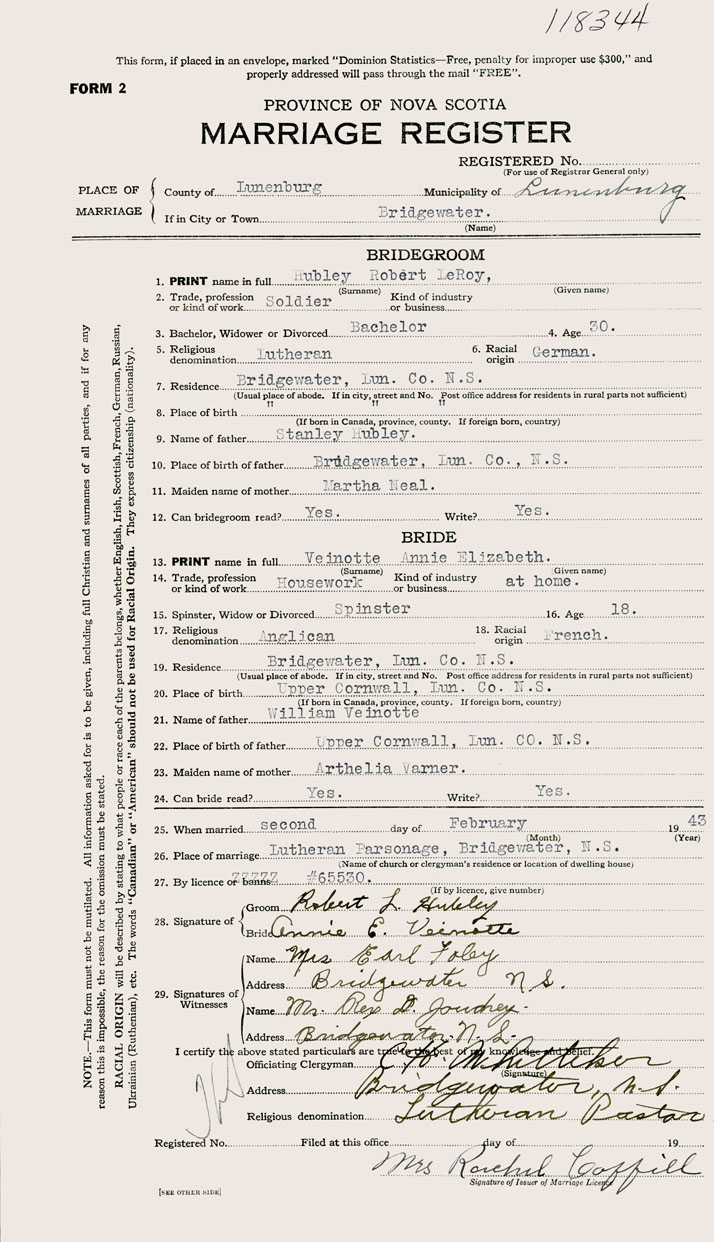 118344
This form, if placed in an envelope, marked "Dominion Statistics—Free, penalty for improper use $300," and
properly addressed will pass through the mail "FREE".
FORM 2
PROVINCE OF NOVA SCOTIA
MARRIAGE REGISTER
REGISTERED No.
(For use of Registrar General only)
PLACE OF MARRIAGE
County of Lunenburg Municipality of Lunenburg
If in City or Town Bridgewater.
(Name)
BRIDEGROOM
1. PRINT name in full Hubley Robert LeRoy,
(Surname) (Given name)
2. Trade, profession or kind of work Soldier Kind of industry or business
3. Bachelor, Widower or Divorced Bachelor 4. Age 30.
5. Religious denomination Lutheran 6. Racial origin German.
7. Residence Bridgewater, Lun. Co N.S.
(Usual place of abode. If in city, street and No. Post office address for residents in rural parts not sufficient)
8. Place of birth " "
(If born in Canada, province, county. If foreign born, country)
9. Name of father Stanley Hubley.
10. Place of birth of father Bridgewater, Lun. Co., N.S.
11. Maiden name of mother Martha Neal.
12. Can bridegroom read? Yes. Write? Yes.
BRIDE
13. PRINT name in full Veinotte Annie Elizabeth.
(Surname) (Given name)
14. Trade, profession or kind of work Housework Kind of industry or business at home.
15. Spinster, Widow or Divorced Spinster 16. Age 18.
17. Religious denomination Anglican 18. Racial origin French.
19. Residence Bridgewater, Lun. Co N.S.
(Usual place of abode. If in city, street and No. Post office address for residents in rural parts not sufficient)
20. Place of birth Upper Cornwall, Lun. Co N.S.
(If born in Canada, province, county. If foreign born, country)
21. Name of father William Veinotte
22. Place of birth of father Upper Cornwall, Lun. CO. N.S.
23. Maiden name of mother Arthelia Varner.
24. Can bride read? Yes. Write? Yes.
25. When married second day of February 1943
(Month) (Year)
26. Place of marriage Lutheran Parsonage, Bridgewater, N.S.
(Name of church or clergyman's residence or location of dwelling house)
27. By licence or banns #65530.
(If by licence, give number)
28. Signature of
Groom Robert L. Hubley
Bride Annie E. Veinotte
29. Signatures of Witnesses
Name Mrs Earl Foley
Address Bridgewater N S.
Name Mr. Rex D. Joudrey
Address Bridgewater N. S.
I certify the above stated particulars are true to the best of my knowledge and belief.
Officiating Clergyman C. H. Whitteker
(Signature)
Address Bridgewater, N.S.
Religious denomination Lutheran Pastor
Registered No. Filed at this office day of 19
Mrs Rachel Coffill
Signature of Issuer of Marriage Licence
[SEE OTHER SIDE]
NOTE.—This form must not be mutilated. All information asked for is to be given, including full Christian and surnames of all parties, and if for any
reason this is impossible, the reason for the omission must be stated.
RACIAL ORIGIN will be described by stating to what people or race each of the parents belongs, whether English, Irish, Scottish, French, German, Russian,
Ukrainian (Ruthenian), etc. The words "Canadian" or "American" should not be used for Racial Origin. They express citizenship (nationality).